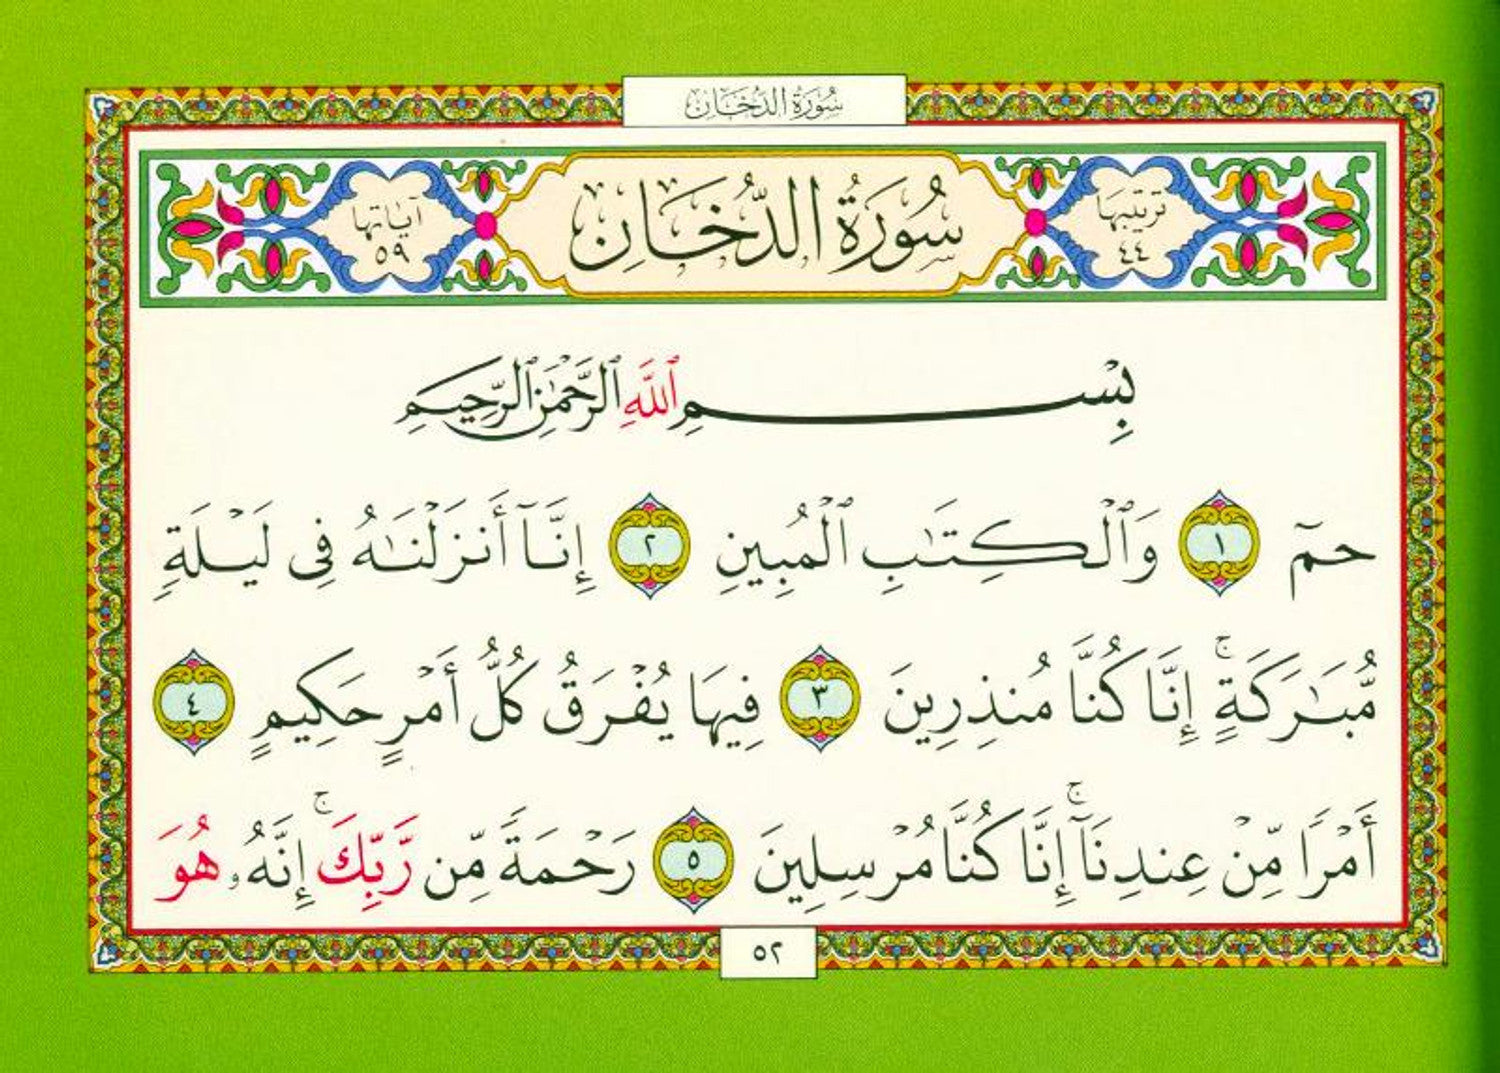 سُورَةُ الدُّخَان
ترتيبها
٤٤
سُورَةُ الدُّخَانِ
آياتها
٥٩
بِسْمِ ٱللَّهِ ٱلرَّحْمَٰنِ ٱلرَّحِيمِ
حمٓ ١ وَٱلْكِتَٰبِ ٱلْمُبِينِ ٢ إِنَّآ أَنزَلْنَٰهُ فِى لَيْلَةٍ
مُّبَٰرَكَةٍ ۚ إِنَّا كُنَّا مُنذِرِينَ ٣ فِيهَا يُفْرَقُ كُلُّ أَمْرٍ حَكِيمٍ ٤
أَمْرًا مِّنْ عِندِنَآ ۚ إِنَّا كُنَّا مُرْسِلِينَ ٥ رَحْمَةً مِّن رَّبِّكَ ۚ إِنَّهُۥ هُوَ
٥٢